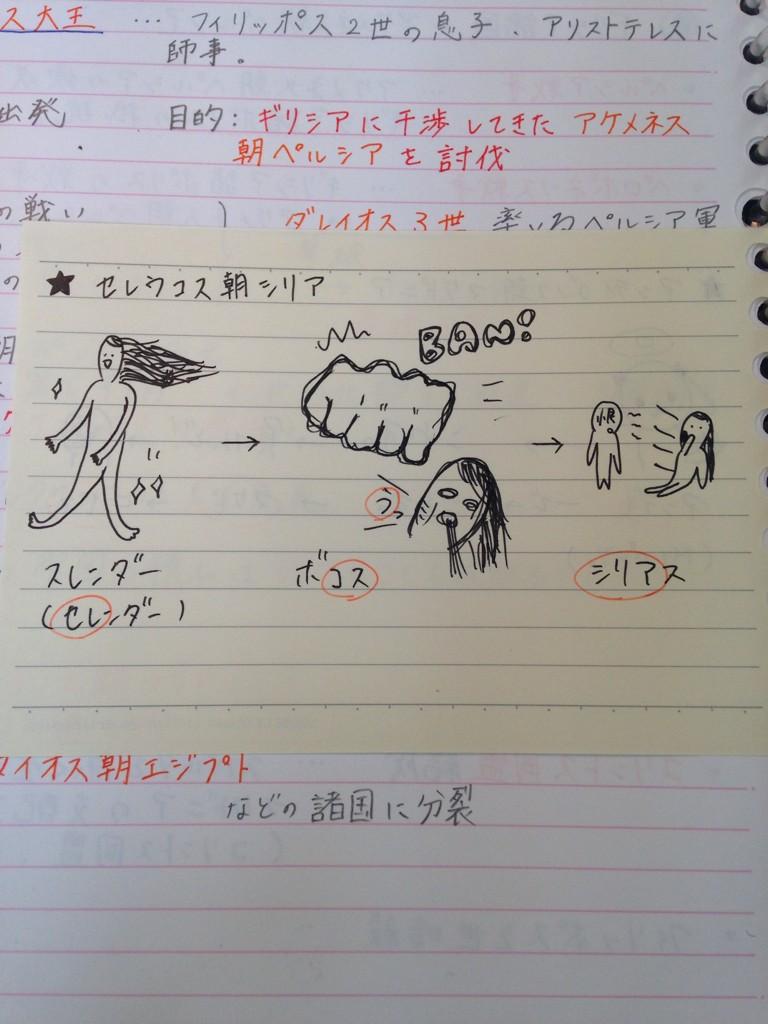 ス大王 … フィリッポス2世の息子、アリストテレスに
師事。
出発 目的: ギリシアに干渉してきた アケメネス
朝ペルシア を 討伐
の戦い ダレイオス3世 率いるペルシア軍
の
★ セレウコス朝シリア
BAN!
恨
うっ
スレンダー
(セレンダー)
ボコス
シリアス
マイオス朝エジプト
などの諸国に分裂